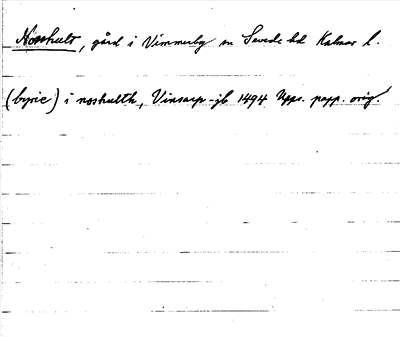 Noshult, gård i Vimmerby sn Sevede hd Kalmar l.
(byrie) i noshulth, Vinsarp-jb 1494 Upps. papp. orig.